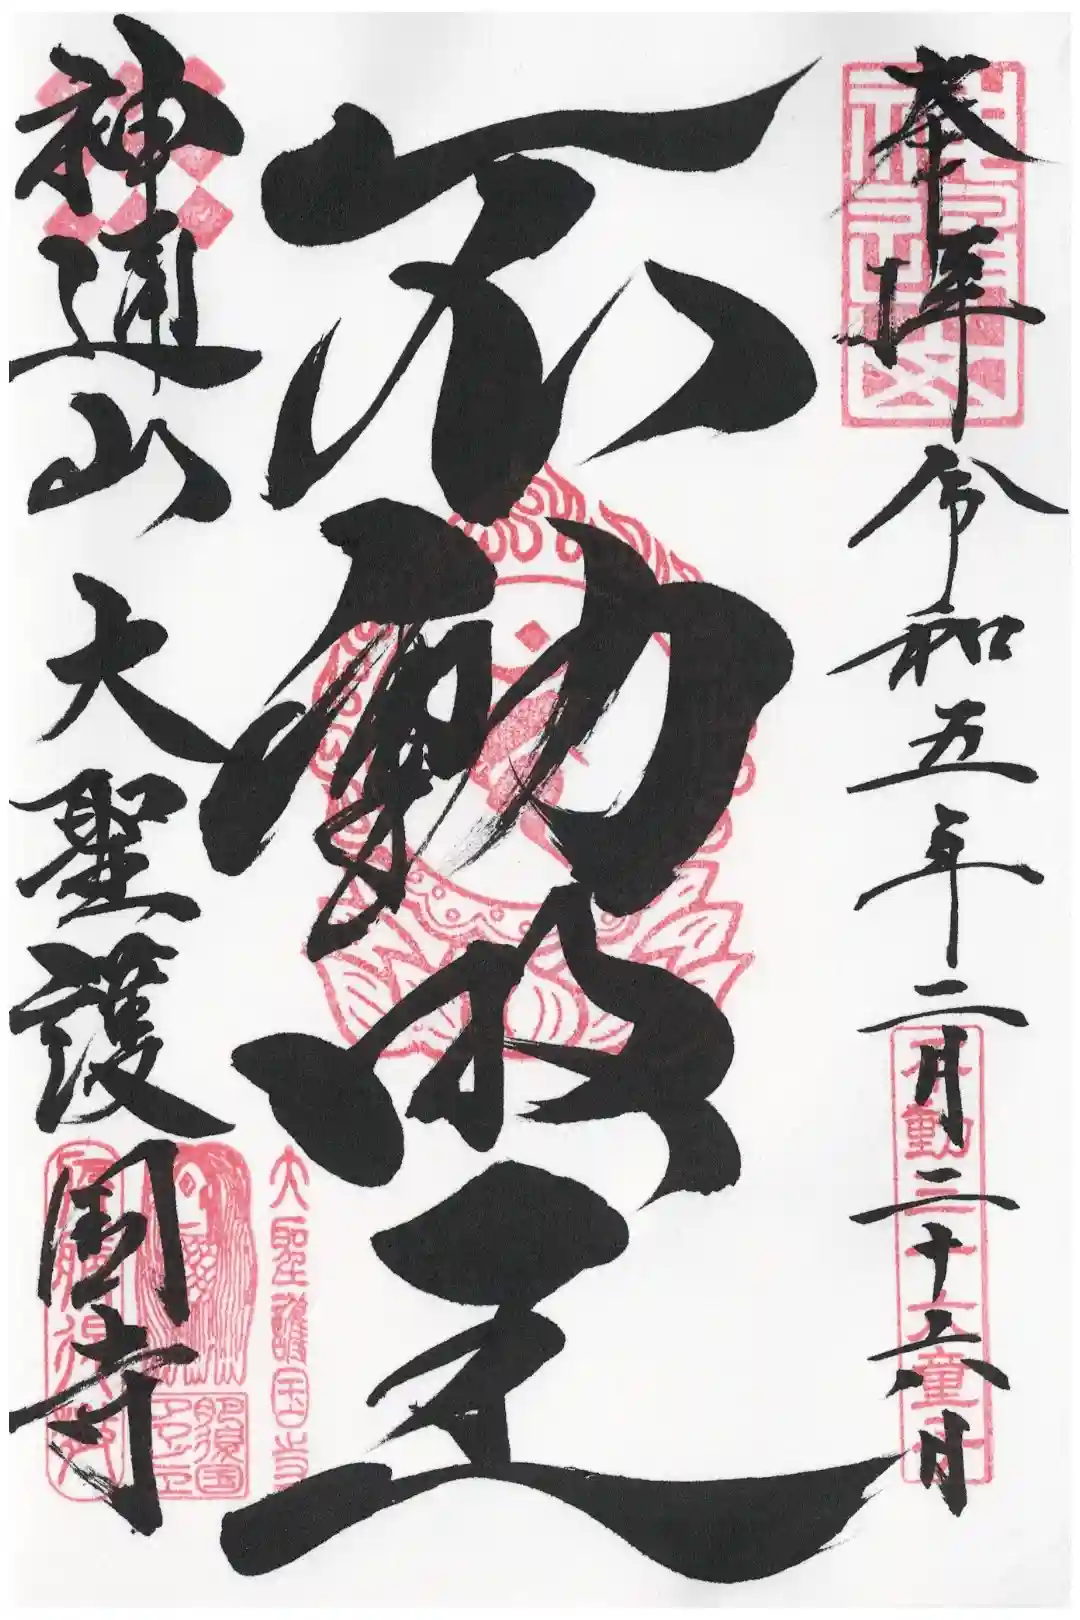 奉拝
令和五年二月二十六日
不動
三十六童子
不動明王
神通山
大聖護国寺
大聖護国寺